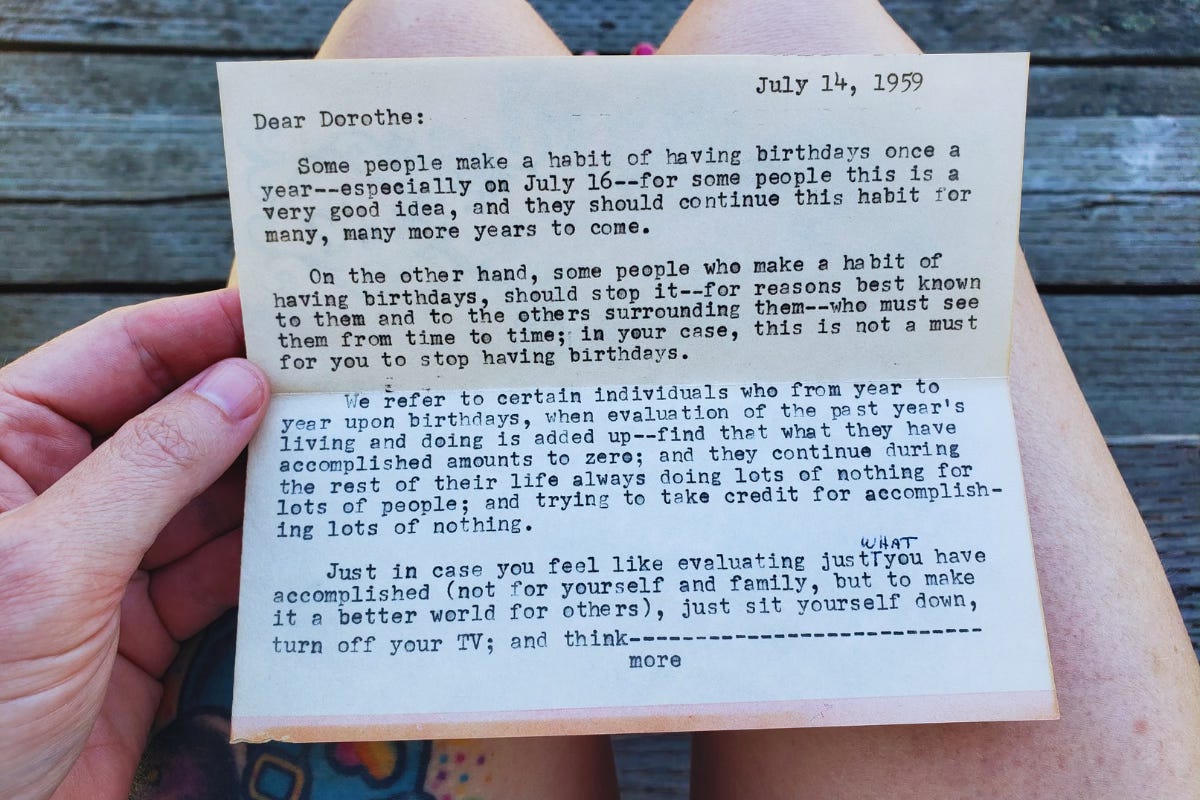 July 14, 1959
Dear Dorothe:
Some people make a habit of having birthdays once a
year--especially on July 16--for some people this is a
very good idea, and they should continue this habit for
many, many more years to come.
On the other hand, some people who make a habit of
having birthdays, should stop it--for reasons best known
to them and to the others surrounding them--who must see
them from time to time; in your case, this is not a must
for you to stop having birthdays.
We refer to certain individuals who from year to
year upon birthdays, when evaluation of the past year's
living and doing is added up--find that what they have
accomplished amounts to zero; and they continue during
the rest of their life always doing lots of nothing for
lots of people; and trying to take credit for accomplish-
ing lots of nothing.
WHAT
Just in case you feel like evaluating just you have
accomplished (not for yourself and family, but to make
it a better world for others), just sit yourself down,
turn off your TV; and think---------------------------
more